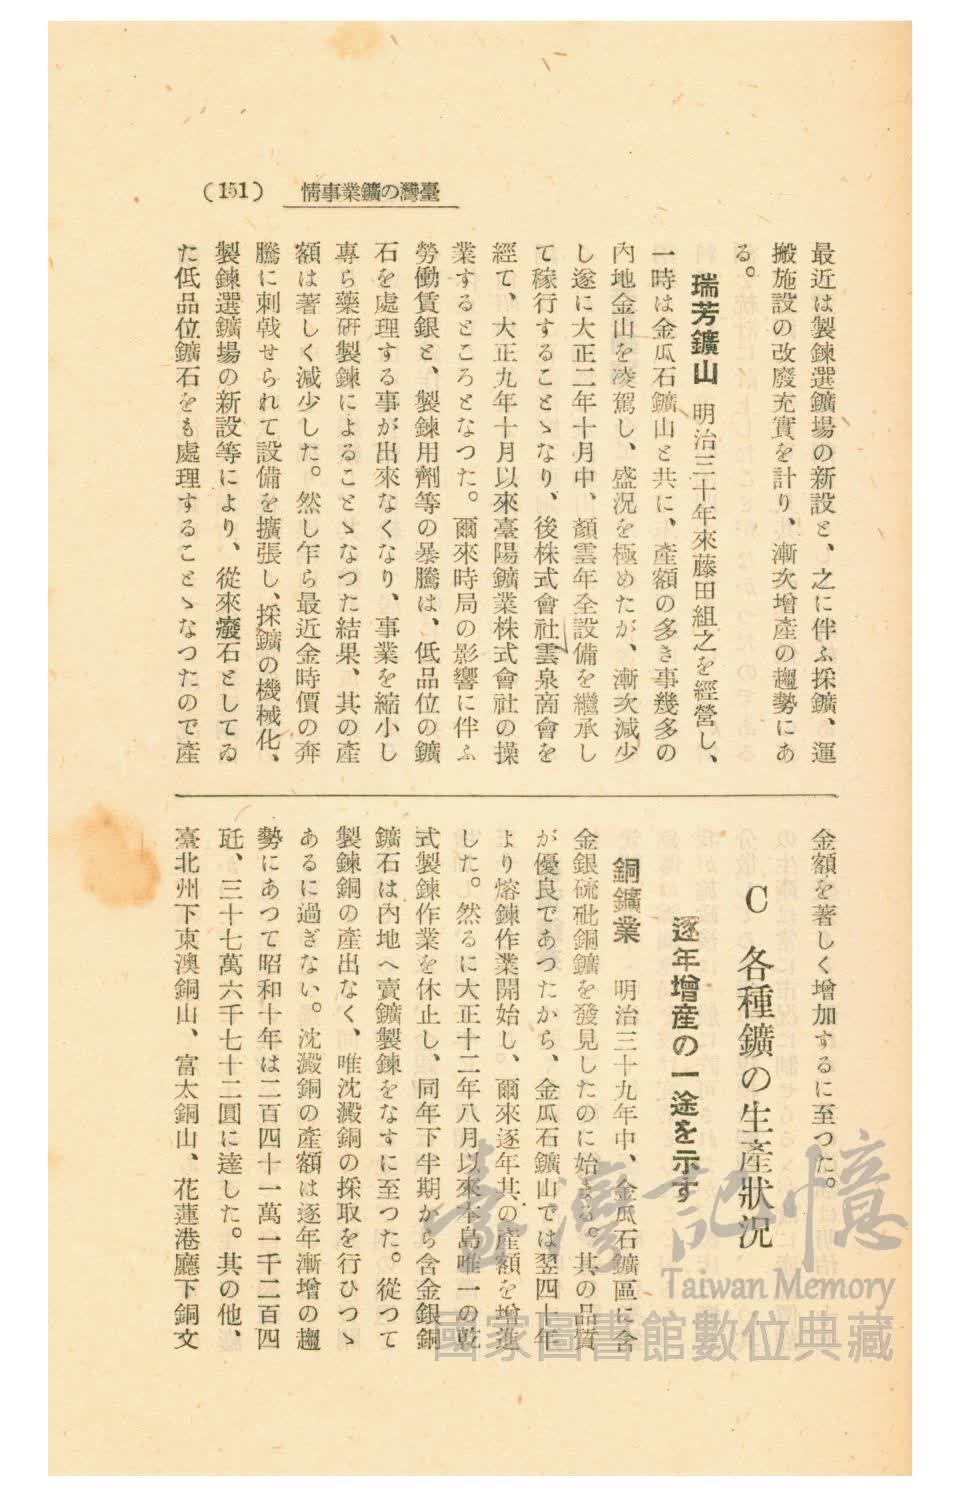 (151) 情事業鑛の灣臺
最近は製鍊選鑛場の新設と、之に伴ふ採鑛、運
搬施設の改廢充實を計り、漸次增產の趨勢にあ
る。
瑞芳鑛山 明治三十年來藤田組之を經營し、
一時は金瓜石鑛山と共に、產額の多き事幾多の
內地金山を凌駕し、盛況を極めたが、漸次減少
し遂に大正二年十月中、顏雲年全設備を繼承し
て稼行することゝなり、後株式會社雲泉商會を
經て、大正九年十月以來臺陽鑛業株式會社の操
業するところとなつた。爾來時局の影響に伴ふ
勞働賃銀と、製鍊用劑等の暴騰は、低品位の鑛
石を處理する事が出來なくなり、事業を縮小し
專ら藥研製鍊によることゝなつた結果、其の產
額は著しく減少した。然し乍ら最近金時價の奔
騰に刺戟せられて設備を擴張し、採鑛の機械化、
製鍊選鑛場の新設等により、從來癈石としてゐ
た低品位鑛石をも處理することゝなつたので產
金額を著しく增加するに至つた。
C 各種鑛の生產狀況
逐年增產の一途を示す
銅鑛業 明治三十九年中、金瓜石鑛區に含
金銀硫砒銅鑛を發見したのに始まる。其の品質
が優良であつたから、金瓜石鑛山では翌四十年
より熔鍊作業開始し、爾來逐年其の產額を增進
した。然るに大正十二年八月以來本島唯一の乾
式製鍊作業を休止し、同年下半期から含金銀銅
鑛石は內地へ賣鑛製鍊をなすに至つた。從つて
製鍊銅の產出なく、唯沈澱銅の採取を行ひつゝ
あるに過ぎない。沈澱銅の產額は逐年漸增の趨
勢にあつて昭和十年は二百四十一萬一千二百四
瓩、三十七萬六千七十二圓に達した。其の他、
臺北州下東澳銅山、富太銅山、花蓮港廳下銅文
臺灣記憶
Taiwan Memory
國家圖書館數位典藏